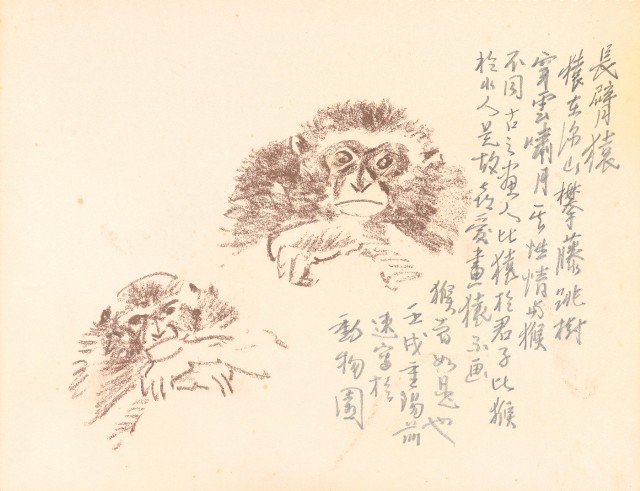 長臂猿
猿在深山攀藤跳樹
穿雲嘯月其性情与猴
不同古之畫人比猿於君子比猴
於小人是故喜愛畫猿不画
猴者如是也
壬戌重陽前
速寫於
動物園